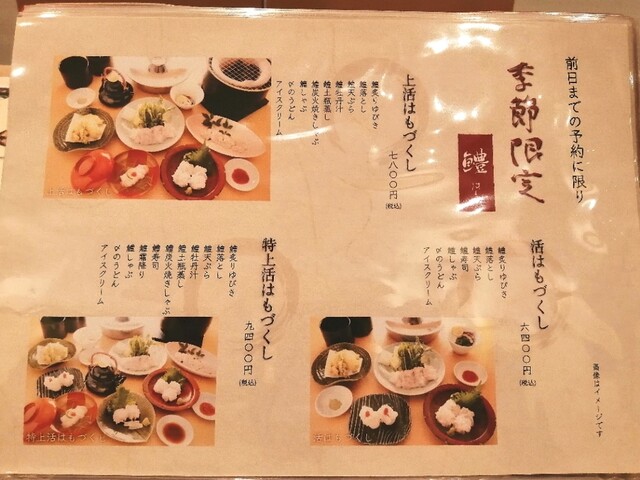 前日までの予約に限り
季節限定
鱧
上活はもづくし
七八〇〇円
(税込)
鱧炙りゆびき
鱧落とし
鱧天ぷら
鱧牡丹汁
鱧土瓶蒸し
鱧炭火焼きしゃぶ
鱧しゃぶ
〆のうどん
アイスクリーム
上活はもづくし
活はもづくし
六四〇〇円
(税込)
鱧炙りゆびき
鱧落とし
鱧天ぷら
鱧寿司
鱧しゃぶ
〆のうどん
アイスクリーム
活はもづくし
特上活はもづくし
九四〇〇円
(税込)
鱧炙りゆびき
鱧落とし
鱧天ぷら
鱧牡丹汁
鱧土瓶蒸し
鱧炭火焼きしゃぶ
鱧寿司
鱧霜降り
鱧しゃぶ
〆のうどん
アイスクリーム
特上活はもづくし
画像はイメージです